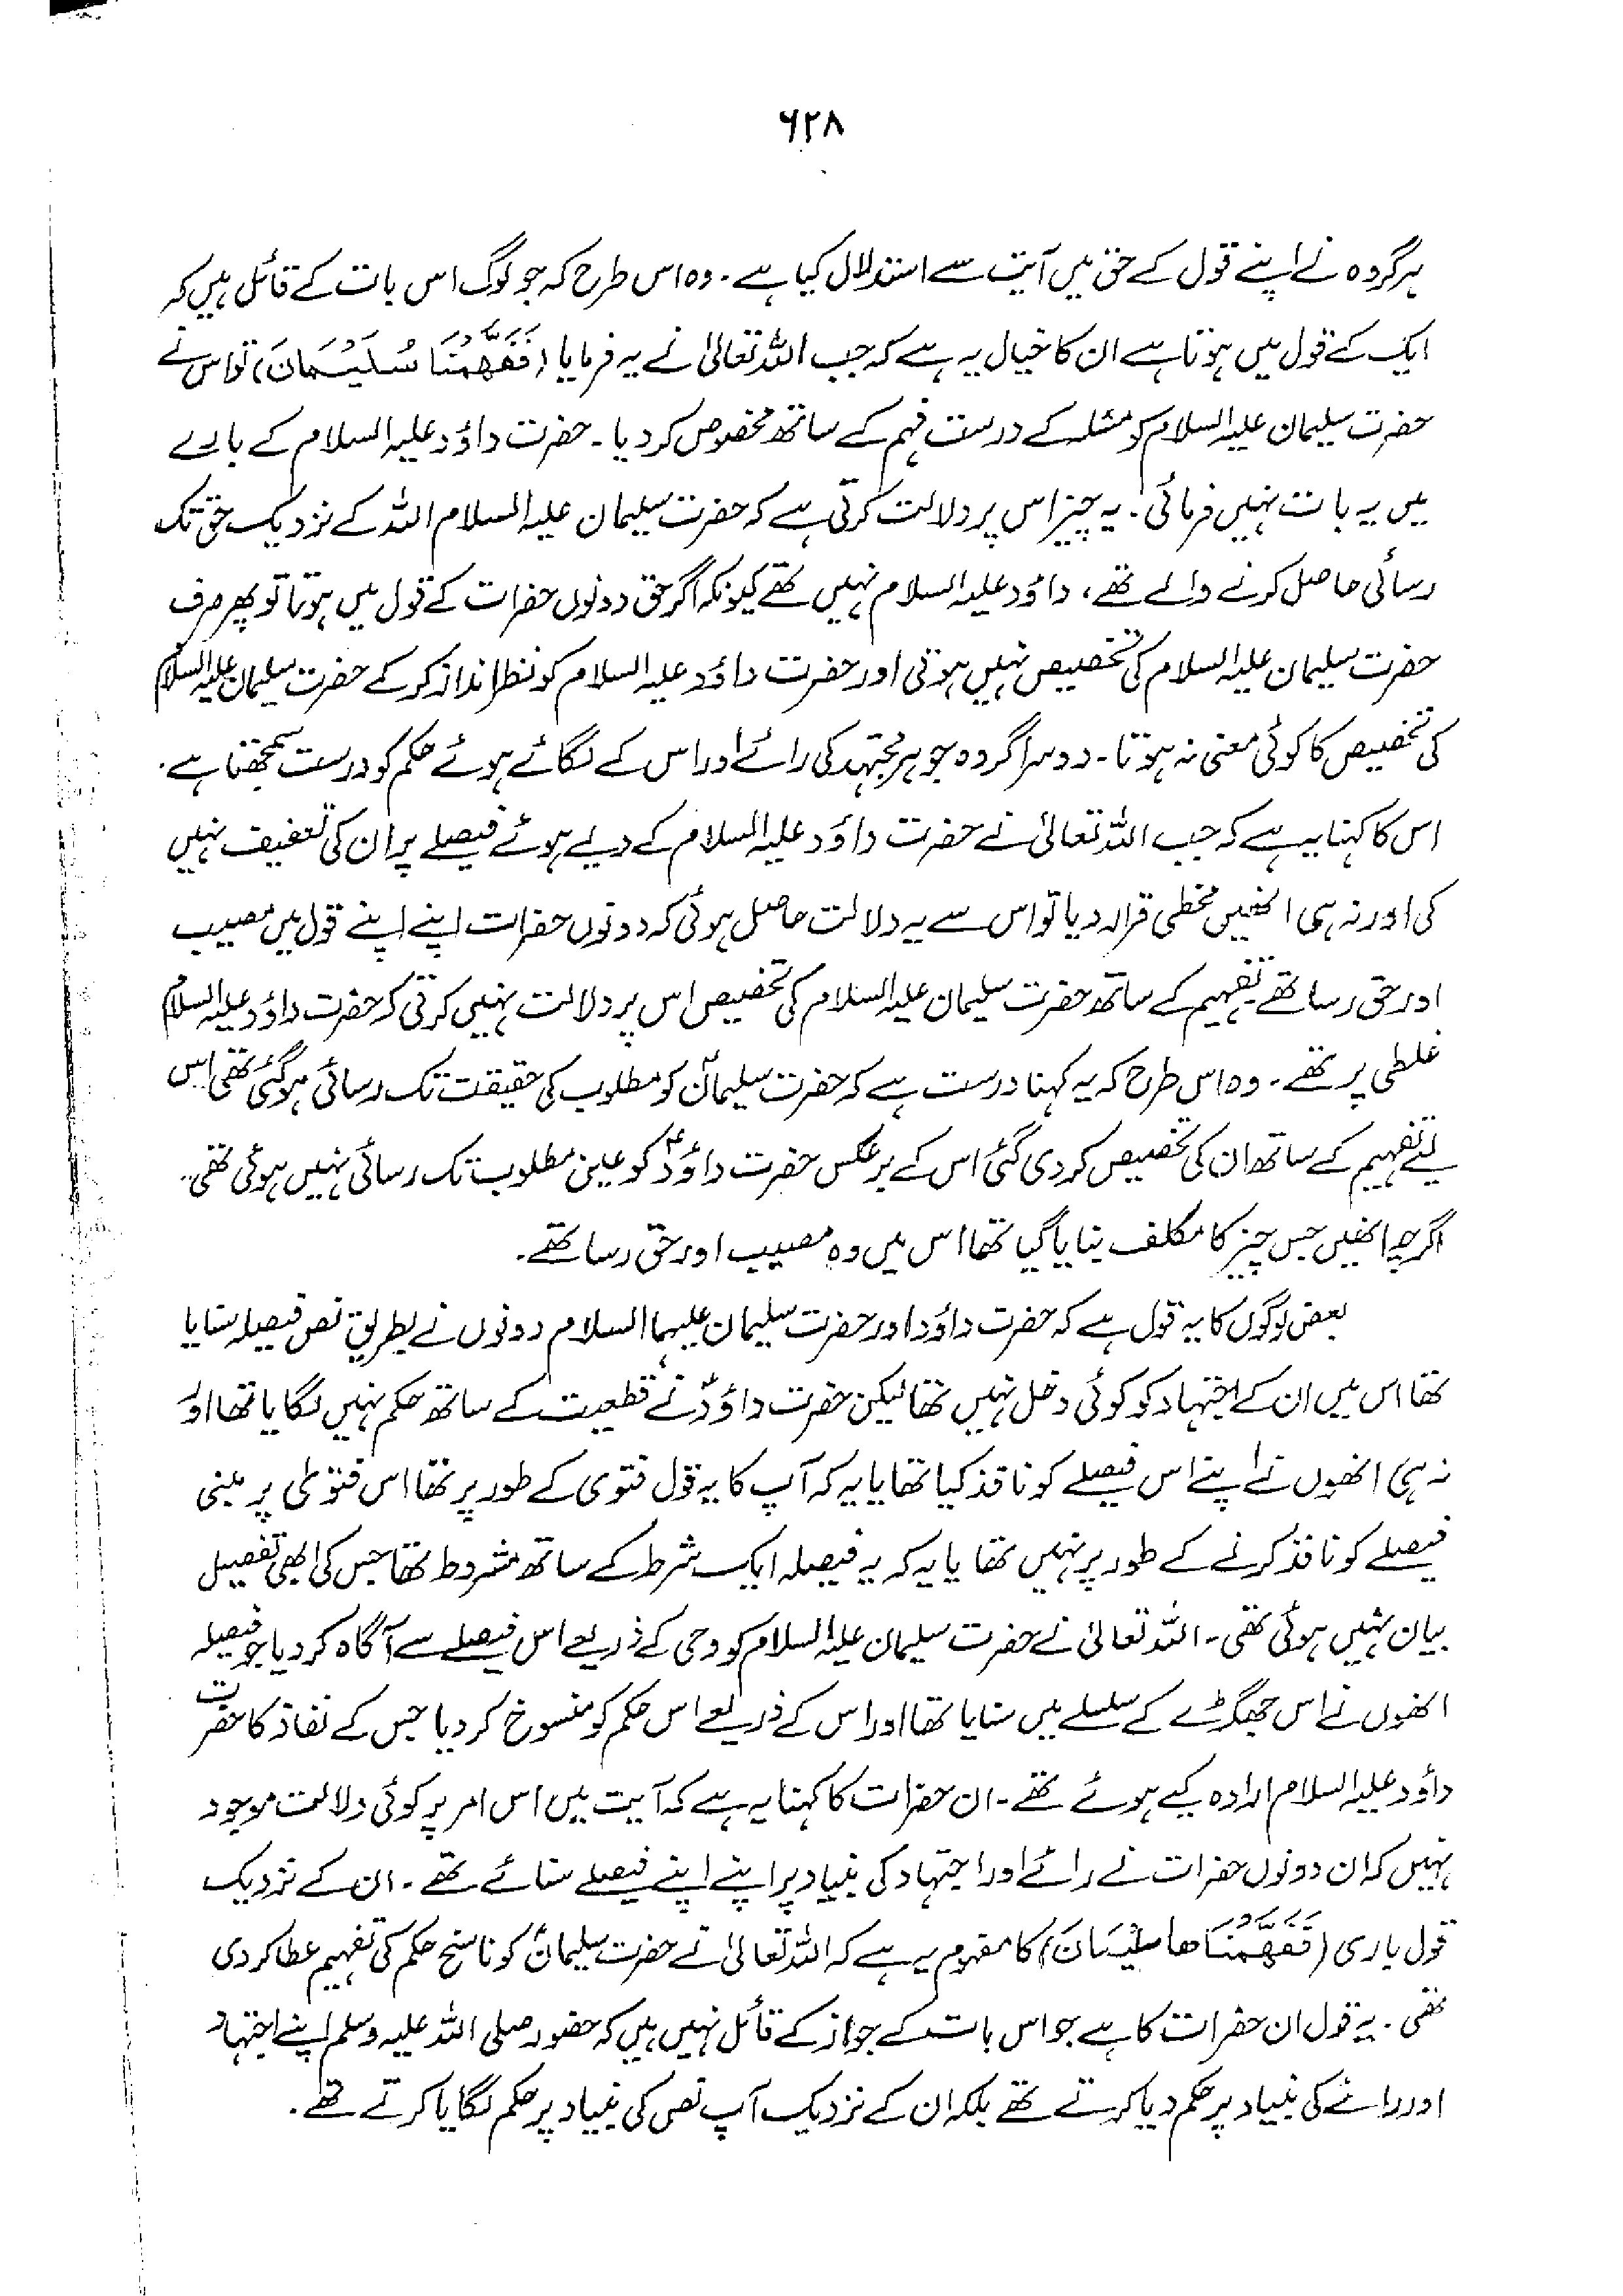 ۶۲۸
ہر گروہ نے اپنے قول کے حق میں آیت سے استدلال کیا ہے۔ وہ اس طرح کہ جو لوگ اس بات کے قائل ہیں کہ
ایک کے قول میں ہوتا ہے ان کا خیال یہ ہے کہ جب اللہ تعالیٰ نے یہ فرمایا (فَفَهَّمْنَا سُلَيْمَانَ) تو اس نے
حضرت سلیمان علیہ السلام کو مسئلہ کے درست فہم کے ساتھ مخصوص کر دیا۔ حضرت داؤد علیہ السلام کے بارے
میں یہ بات نہیں فرمائی۔ یہ چیز اس پر دلالت کرتی ہے کہ حضرت سلیمان علیہ السلام اللہ کے نزدیک حق تک
رسائی حاصل کرنے والے تھے، داؤد علیہ السلام نہیں تھے کیونکہ اگر حق دونوں حضرات کے قول میں ہوتا تو پھر صرف
حضرت سلیمان علیہ السلام کی تخصیص نہیں ہوتی اور حضرت داؤد علیہ السلام کو نظر انداز کر کے حضرت سلیمان علیہ السلام
کی تخصیص کا کوئی معنی نہ ہوتا۔ دوسرا گروہ جو ہر مجتہد کی رائے اور اس کے لگائے ہوئے حکم کو درست سمجھتا ہے۔
اس کا کہنا یہ ہے کہ جب اللہ تعالیٰ نے حضرت داؤد علیہ السلام کے دیے ہوئے فیصلے پر ان کی تعفیف نہیں
کی اور نہ ہی انھیں مخطی قرار دیا تو اس سے یہ دلالت حاصل ہوئی کہ دونوں حضرات اپنے اپنے قول میں مصیب
اور حق رسا تھے تفہیم کے ساتھ حضرت سلیمان علیہ السلام کی تخصیص اس پر دلالت نہیں کرتی کہ حضرت داؤد علیہ السلام
غلطی پر تھے۔ وہ اس طرح کہ یہ کہنا درست ہے کہ حضرت سلیمانؑ کو مطلوب کی حقیقت تک رسائی ہو گئی تھی اس
لیے تفہیم کے ساتھ ان کی تخصیص کر دی گئی اس کے برعکس حضرت داؤدؑ کو عین مطلوب تک رسائی نہیں ہوئی تھی۔
اگرچہ انھیں جس چیز کا مکلف بنایا گیا تھا اس میں وہ مصیب اور حق رسا تھے۔
بعض لوگوں کا یہ قول ہے کہ حضرت داؤد اور حضرت سلیمان علیہما السلام دونوں نے بطریق نص فیصلہ سنایا
تھا اس میں ان کے اجتہاد کو کوئی دخل نہیں تھا لیکن حضرت داؤدؑ نے قطعیت کے ساتھ حکم نہیں لگایا تھا اور
نہ ہی انھوں نے اپنے اس فیصلے کو نافذ کیا تھا یا یہ کہ آپ کا یہ قول فتوی کے طور پر تھا اس فتویٰ پر مبنی
فیصلے کو نافذ کرنے کے طور پر نہیں تھا یا یہ کہ یہ فیصلہ ایک شرط کے ساتھ مشروط تھا جس کی ابھی تفصیل
بیان نہیں ہوئی تھی۔ اللہ تعالیٰ نے حضرت سلیمان علیہ السلام کو وحی کے ذریعے اس فیصلے سے آگاہ کر دیا جو فیصلہ
انھوں نے اس جھگڑے کے سلسلے میں سنایا تھا اور اس کے ذریعے اس حکم کو منسوخ کر دیا جس کے نفاذ کا حضرت
داؤد علیہ السلام ارادہ کیے ہوئے تھے۔ ان حضرات کا کہنا یہ ہے کہ آیت میں اس امر پر کوئی دلالت موجود
نہیں کہ ان دونوں حضرات نے رائے اور اجتہاد کی بنیاد پر اپنے اپنے فیصلے سنائے تھے۔ ان کے نزدیک
قول باری (فَفَهَّمْنَاها سلَيْمَانَ) کا مفہوم یہ ہے کہ اللہ تعالیٰ نے حضرت سلیمانؑ کو ناسخ حکم کی تفہیم عطا کر دی
تھی۔ یہ قول ان حضرات کا ہے جو اس بات کے جواز کے قائل نہیں ہیں کہ حضور صلی اللہ علیہ وسلم اپنے اجتہاد
اور رائے کی بنیاد پر حکم دیا کرتے تھے بلکہ ان کے نزدیک آپ نص کی بنیاد پر حکم لگایا کرتے تھے۔